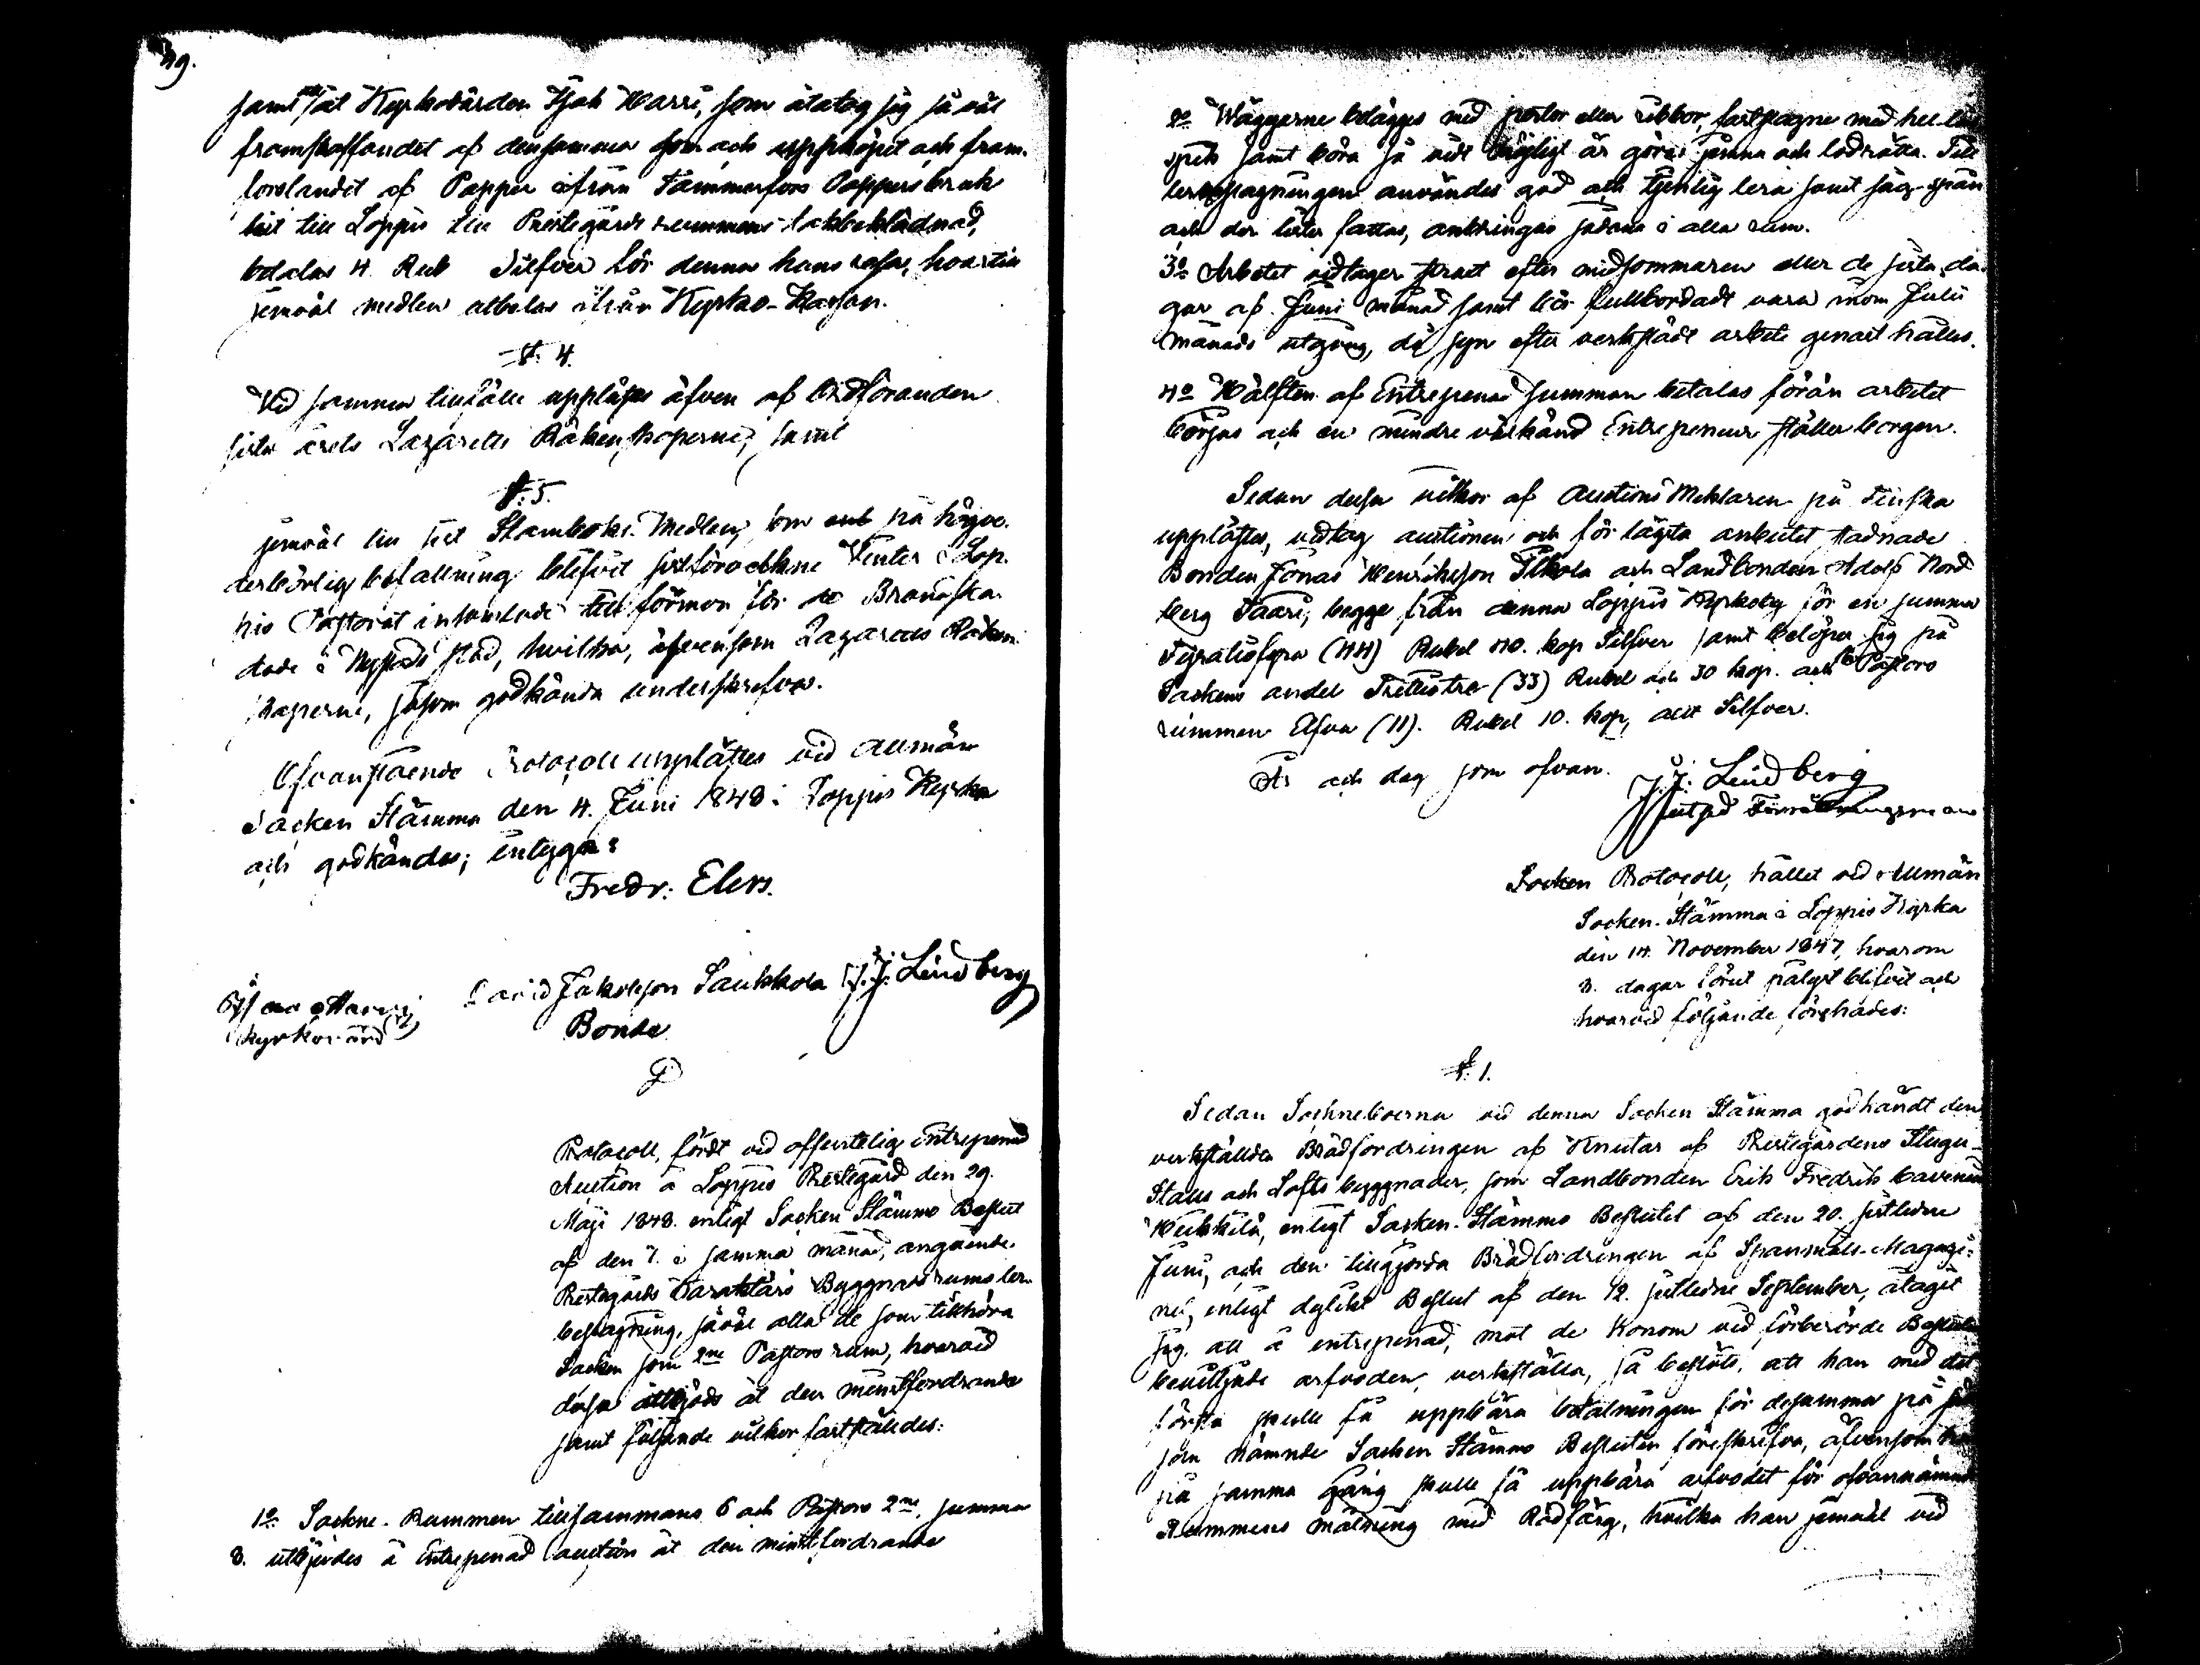 49.
samt åt Kyrkovärden Isak Harri, som åtatog sig så väl
framskaffandet af densamma som och uppköpet och fram-
forslandet af Papper ifrån Tammerfors Pappersbruk
hit till Loppis till Prestegårds rummens takbeklädnad,
betalas 4. Rub Silfver för denna hans resa, hvartill
jemväl medlen utbetalas ifrån Kyrko-Kassan.
§. 4.
Vid samma tillfälle upplästes äfven af Ordföranden
sista årets Lazaretts Räkenskaperne, samt
§. 5.
jemväl en del Stamboks-Medlen, som på högve-
derbörlig befallning blifvit sistförvekne Vinter i Lop-
pis Pastorat insamlade till förmon för de Brandska-
dade i Nystads stad, hvilka, äfvensom Lazaretts Räken-
skaperne, såsom godkända underskrefvos.
Ofvanstående Protocoll upplästes vid Allmän
Socken Stämma den 4. Juni 1848 i Loppis Kyrka
och godkändes; intygar
Fredr: Elers.
Isaac Harri
Kyrkovärd
David Jakobsson Saukkola
Bonde
J. J. Lindberg
Protocoll, fördt vid offentelig Entrepenad
Auction å Loppis Prestegård den 29.
Maji 1848. enligt Socken Stämmo Beslut
af den 7. i samma månad, angående
Prestegårds Karaktärs Byggnads rums ler-
beslagning, såväl alla de som tillhöra
Socken som 2ne Pastors rum, hvarvid
dessa utbjöds åt den minstfordrande
samt följande vilkor fastställdes:
1o. Sockne-Rummen tillsammans 6 och Pastors 2ne, summa
8. utbjudes å Entrepenad auction åt den minstfordrande
2o Wäggarne beläggas med pertor eller ribbor, fastslagne med
spik samt böra så vidt möjligt är göras jemna och lodräta. Till
lerslagningen användes god och tjenlig lera samt såg-spån
och der lister fattas, anbringas sådana i alla rum.
3o Arbetet vidtager strax efter midsommaren eller de sista da-
gar af Juni månad samt bör fullbordadt vara inom Julii
månads utgång, då syn efter verkstäldt arbete genast hålles.
4o Hälften af Entreprenad summan betalas förän arbetet
börjas och en mindre välkänd Entrepreneur ställer borgen.
Sedan dessa vilkor af Auctions Mäklaren på Finska
upplästes, vidtog auctionen och för lägsta anbudet stadnade
Bonden Jonas Henriksson Pikola och Landbonden Adolf Nord-
berg Saari, begge från denna Loppis Kyrkoby för en summa
Fyratiofyra (44) Rubel 40. kop Silfver samt belöper sig på
Sockens andel Trettiotre (33) Rubel och 30 kop. och för Pastors
rummen Elfva (11). Rubel 10. kop, allt Silfver.
År och dag som ofvan.
J. J. Lindberg
utsedd Förrättningsman
Socken Protocoll, hållet vid Allmän
Socken-Stämma i Loppis Kyrka
den 14. November 1847, hvarom
8. dagar förut pålyst blifvit och
hvarvid följande förehades:
§. 1.
Sedan Sockneboerna vid denna Socken Stämma godkändt den
verkställda Brädfordringen af Knutar af Prestegårdens Stugu-
Stalls och Lofts byggnader, som Landbonden Erik Fredrik
Heikkilä, enligt Socken-Stämmo Beslutet af den 20. sistledne
Juni, och den tillgjorda Brädfordringen af Spanmåls-Magazi-
net, enligt dylikt Beslut af den 12. sistledne September, åtagit
sig att å entrepenad, mot de honom vid förberörde Besluten
beviljade arfvoden, verkställa, så beslöts, att han med det
första skulle få uppbära betalningen för desamma på sätt
som nämnde Socken Stämmo Besluten föreskrifva, äfvensom han
på samma gång skulle få uppbära arfvodet för ofvannämnde
Rummens målning med Rödfärg, hvilka han jemväl vid